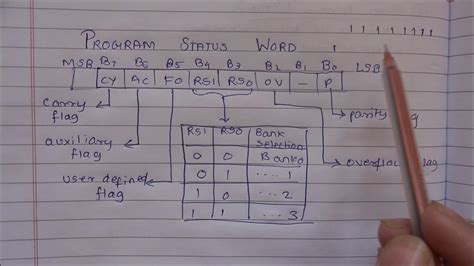 1 1 1 1 1 1 1 1
PROGRAM STATUS WORD 1
MSB B7 B6 B5 B4 B3 B2 B1 B0 LSB
CY AC F0 RS1 RS0 OV — P
carry flag
parity
auxiliary flag
user defined flag
overflow flag
RS1 RS0 Bank Selection
0 0 Bank0
0 1 ....1
1 0 ...2
1 1 ...3